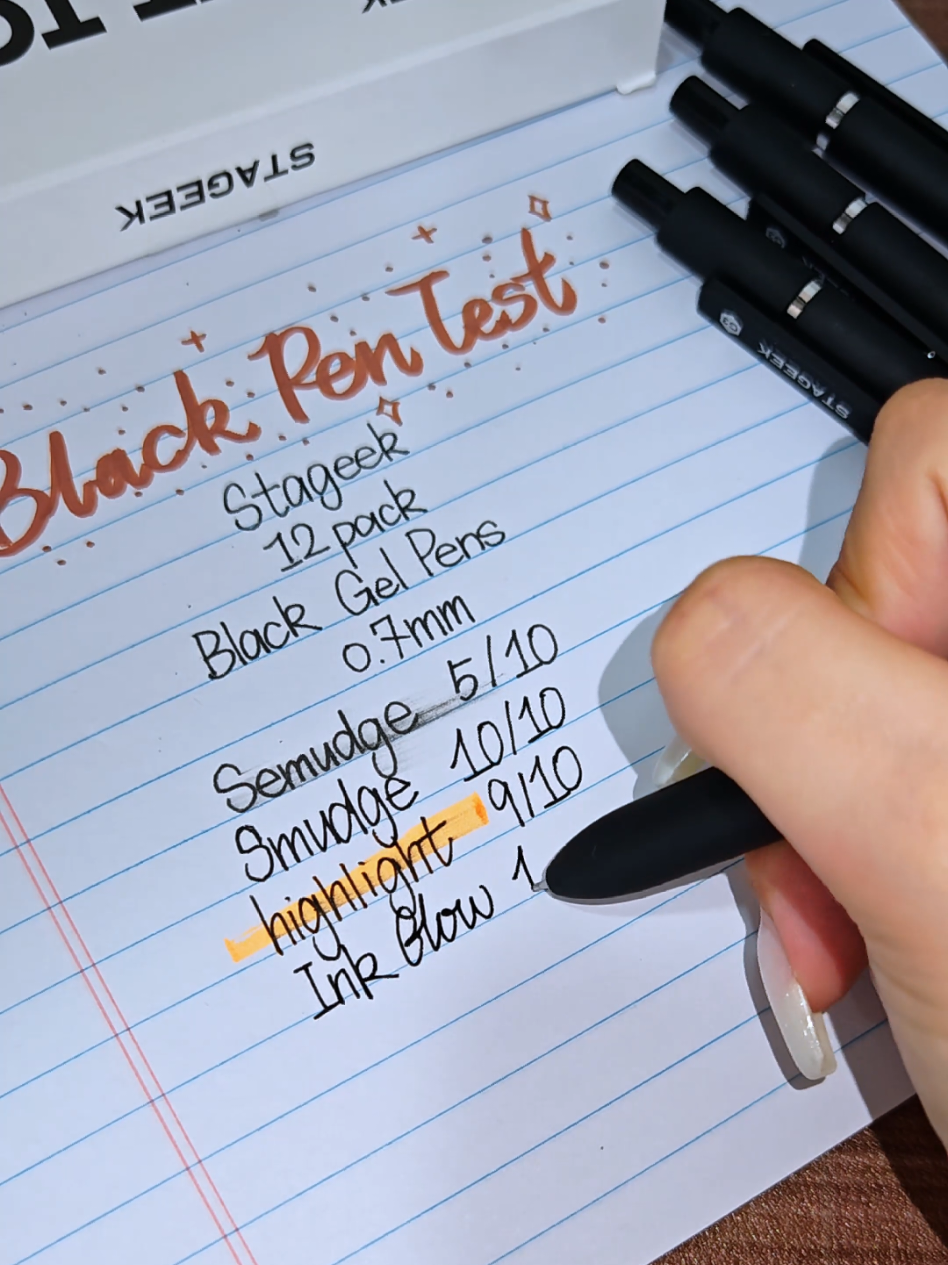 STAGEEK
Black Pen Test
STAGEEK
Stageek
12 pack
Black Gel Pens
0.7mm
Semudge 5/10
Smudge 10/10
highlight 9/10
Ink Blow 1